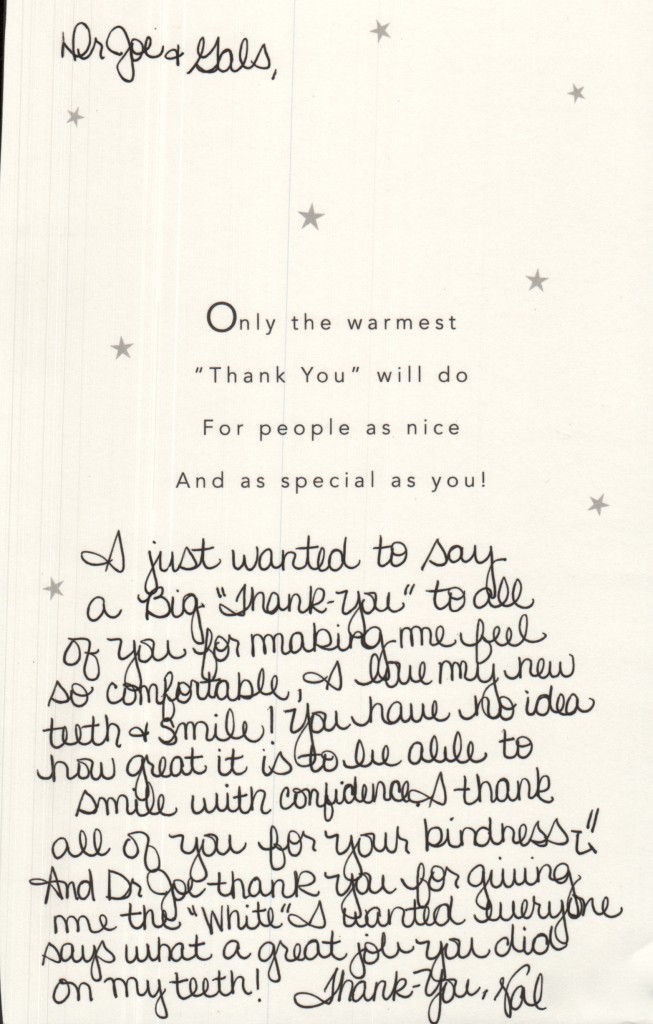 Dr Joe & Gals,
Only the warmest
“Thank You” will do
For people as nice
And as special as you!
I just wanted to say
a Big "Thank-You" to all
of you for making me feel
so comfortable, I love my new
teeth & Smile! You have No idea
how great it is to be able to
smile with confidence. I thank
all of you for your kindness
And Dr Joe thank you for giving
me the "White" I wanted everyone
says what a great job you did
on my teeth! Thank-You, Val